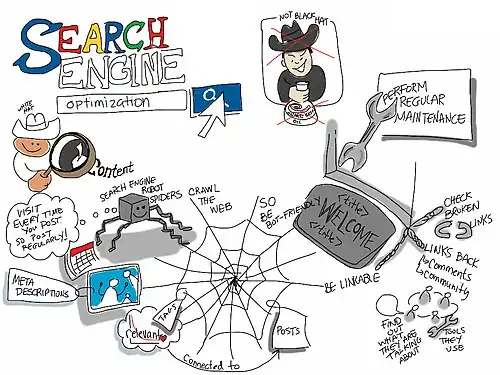 SEARCH
ENGINE
optimization
NOT BLACK HAT
OIL
PERFORM
REGULAR
MAINTENANCE
WHITE
HAT
Content
SEARCH ENGINE
ROBOT
SPIDERS
CRAWL
THE
WEB
SO
BE
BOT-FRIENDLY
<title>
WELCOME
</title>
CHECK
BROKEN
LINKS
VISIT
EVERY TIME
YOU POST
SO POST
REGULARLY!
LINKS BACK
Comments
Community
BE LINKABLE
META
DESCRIPTIONS
TAGS
relevant
POSTS
Connected to
FIND
OUT
WHAT
THEY ARE
TALKING
ABOUT
TOOLS
THEY
USE